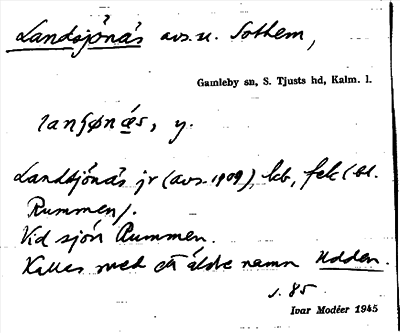 Landsjönäs avs. u. Sothem,
Gamleby sn, S. Tjusts hd, Kalm. l.
y.
Landsjönäs jr (avs. 1909), lcb, fek (bl.
Rummen).
Vid sjön Rummen.
Kallas med ett äldre namn Udden.
s. 85
Ivar Modéer 1945